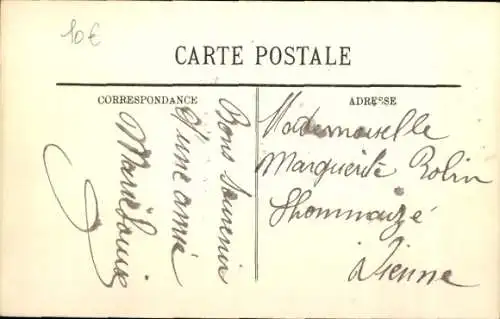 10€
CARTE POSTALE
CORRESPONDANCE
ADRESSE
Bons Souvenir
d'une amie
Marie Louise
Mademoiselle
Marguerite Rolin
Lhommaizé
Vienne